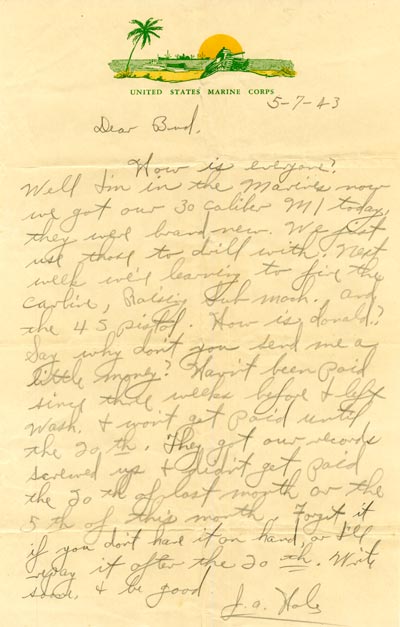 UNITED STATES MARINE CORPS
5-7-43
Dear Bud,
How is everyone?
Well I'm in the Marines now
we got our 30 caliber M1 today,
they were brand new. We just
use those to drill with. Next
week we're learning to fire the
carbine, Raising Sub Mach. and
the 45 pistol. How is donald?
Say why don't you send me a
little money? Havn't been paid
since three weeks before I left
Wash. & won't get paid until
the 20th. They got our records
screwed up & didn't get paid
the 20th of last month or the
5th of this month. Forget it
if you don't have it on hand, or I'll
repay it after the 20th. Write
soon, & be good
J.A.